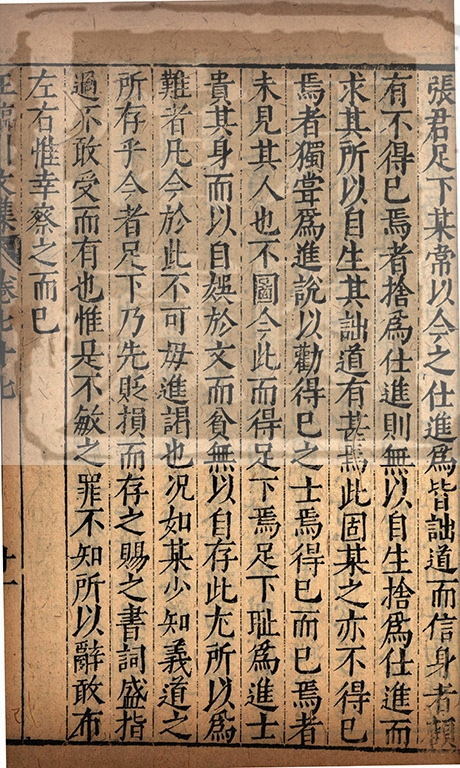 張君足下某常以今之仕進爲皆詘道而信身者顧
有不得已焉者捨爲仕進則無以自生捨爲仕進而
求其所以自生其詘道有甚焉此固某之亦不得已
焉者獨嘗爲進說以勸得已之士焉得已而已焉者
未見其人也不圖今此而得足下焉足下耻爲進士
貴其身而以自娛於文而貧無以自存此尤所以爲
難者凡今於此不可毋進謁也况如某少知義道之
所存乎今者足下乃先貶損而存之賜之書詞盛指
過不敢受而有也惟是不敏之罪不知所以辭敢布
左右惟幸察之而已
王臨川文集 卷七十七 十一